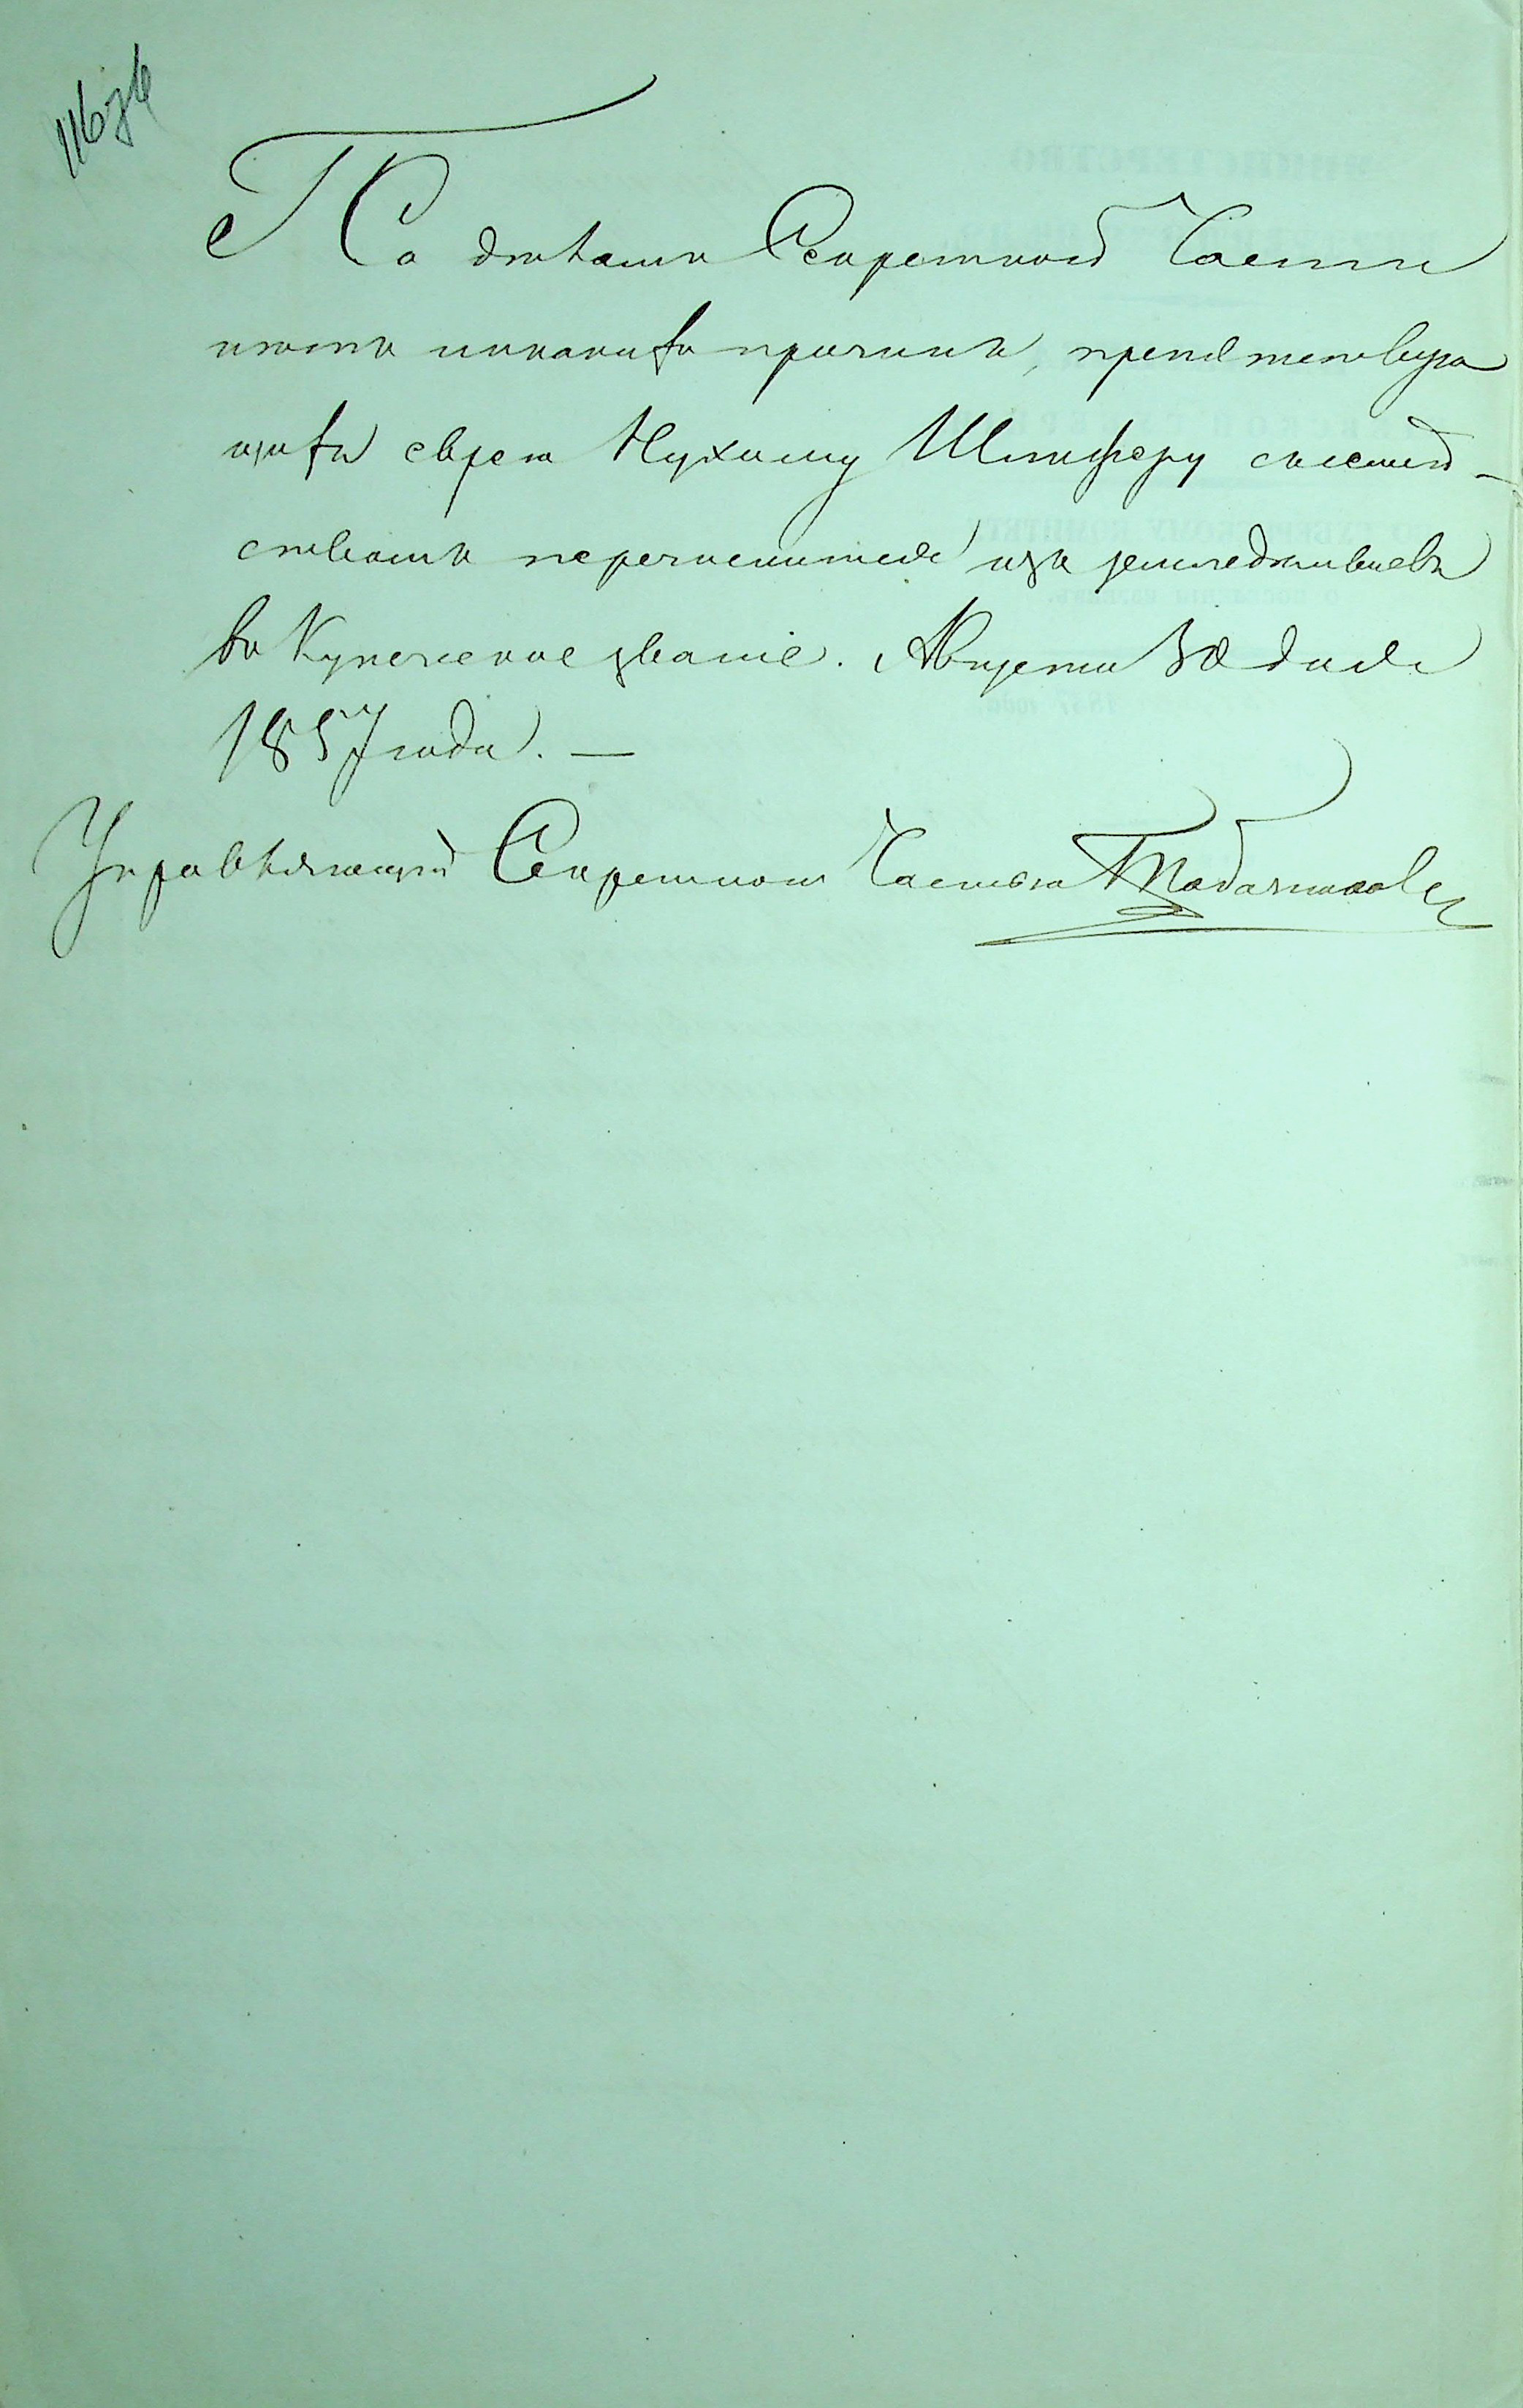 По дѣламъ Секретной Части
нѣтъ никакихъ причинъ, препятствую
щихъ еврею Нухиму Шлиферу съ семей-
ствомъ перечислиться изъ земледѣльцевъ
въ Купеческое званіе. Августа 30 дня
1857 года. —
Управляющій Секретною Частью Табачниковъ